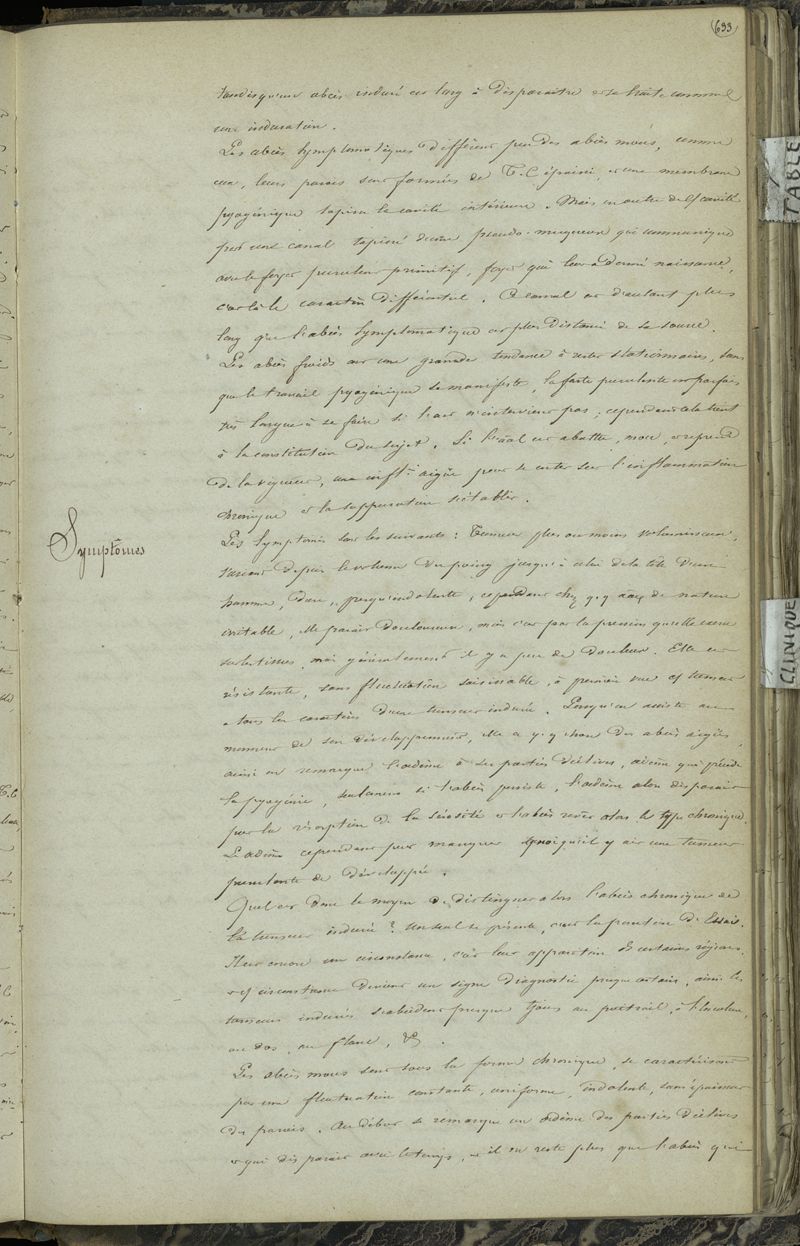 633
tandis qu'un abcès induré est long à disparaître et se traite comme
une induration.
Les abcès symptomatiques diffèrent peu des abcès mous, comme
eux, leurs parois sont formées de T. C épaissi, et une membrane
pyogénique tapisse la cavité intérieure. Mais en outre de cette cavité
un canal tapissé d'une pseudo-muqueuse qui communique
avec le foyer purulent primitif, foyer qui leur a donné naissance,
c'est là le caractère différentiel. Ce canal est d'autant plus
long que l'abcès symptomatique est plus distant de sa source.
Les abcès froids ont une grande tendance à rester stationnaires, sans
que le travail pyogénique se manifeste, la fonte purulente est parfois
très longue à se faire si l'art n'intervient pas; cependant cela tient
à la constitution du sujet. Si l'aal est abattu, mou, et reprend
de la vigueur, une inflon aigüe peut se enter sur l'inflammation
chronique et la suppuration s'établir.
Symptômes
Les symptômes sont les suivants: Tumeur plus ou moins volumineuse,
variant depuis le volume du poing jusqu'à celui de la tête d'un
homme, dure, presqu'indolente, cependant chez q.q aaux de nature
irritable, elle paraît douloureuse, mais c'est par la pression qu'elle exerce
sur les tissus, mais généralement il y a peu de douleur. Elle est
résistante, sans fluctuation saisissable, à première vue cette tumeur
a tous les caractères d'une tumeur indurée. Lorsqu'on assiste au
moment de son développement, elle a q.q chose des abcès aigus,
ainsi on remarque l'œdème à ses parties déclives, œdème qui précède
la pyogénie, seulement si l'abcès persiste, l'œdème alors disparaît
par la résorption de la sérosité et l'abcès revêt alors le type chronique.
L'œdème cependant peut manquer quoiqu'il y ait une tumeur
purulente de développée.
Quel est donc le moyen de distinguer alors l'abcès chronique de
la tumeur indurée? Un seul se présente, c'est la ponction d'Essai.
Il est encore une circonstance, c'est leur apparition ds certaines régions
et cette circonstance devient un signe diagnostic presque certain, ainsi les
tumeurs indurées s'abcèdent presque tjours au poitrail, à l'encolure,
au dos, au flanc, &.
Les abcès mous sont sous la forme chronique, se caractérisent
par une fluctuation constante, uniforme, indolente, sans épaisseur
des parois. Au début se remarque un œdème des parties déclives
et qui disparaît avec le temps, et il ne reste plus que l'abcès qui
TABLE
CLINIQUE